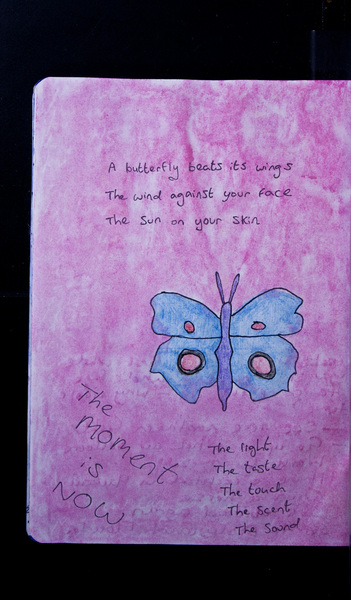 A butterfly beats its wings
The wind against your face
The Sun on your skin
The
moment
is
NOW
The light
The taste
The touch
The scent
The Sound